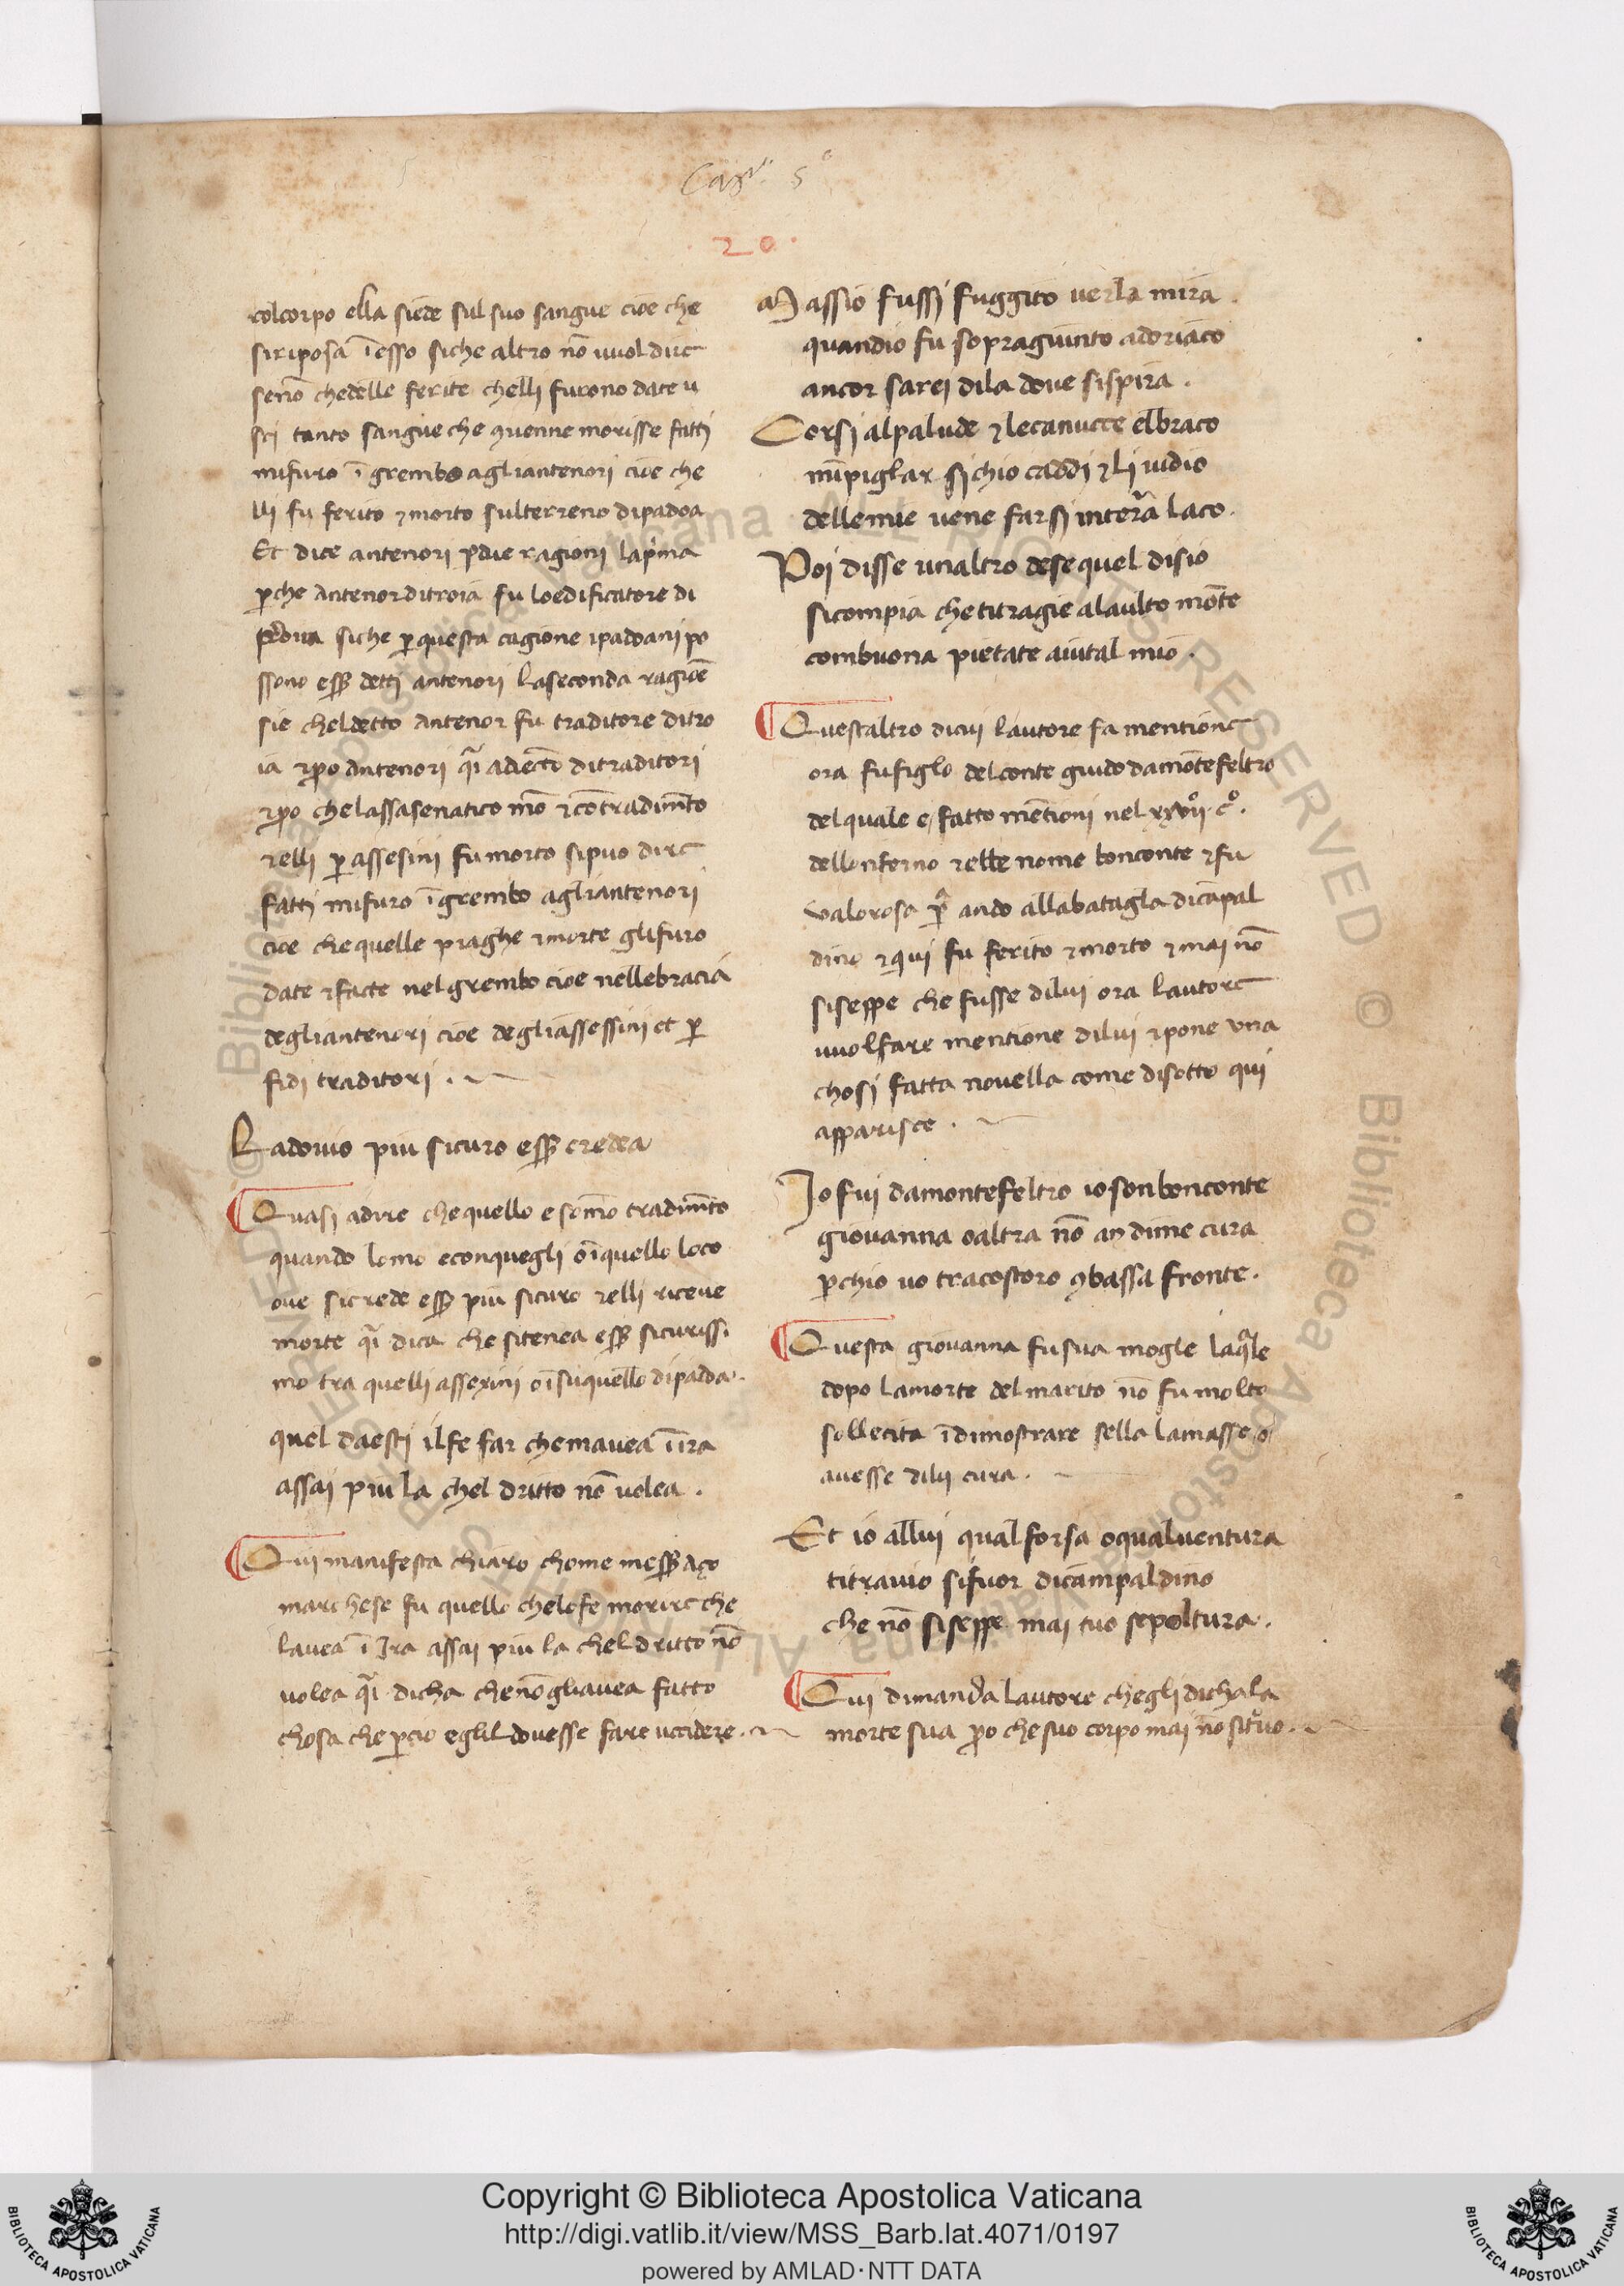 Capº. 5º
.20.
colcorpo ella siede sul suo sangue cioe che
siriposa ī esso siche altro nō vuol dire
senō chedelle ferite chelli furono date u
scj tanto sangue che ꝯuenne morisse fattj
mifuro ī grembo agliantenori cioe che
lli fu ferito ⁊morto sulterreno dipadoa
Et dice antenori p̱due ragionj lap̓ma
p̱che antenorditroia fu loedificatore di
padoua siche p̱questa cagione ipadoanj po
ssono eēre dettj antenori laseconda ragiōe
sie cheldetto antenor fu traditore ditro
ia ⁊p̱o antenori q̄i adiecto ditraditori
⁊p̱o chelassasenatico mō ⁊cō tradimēto
⁊elli p̱ assesinj fumorto sipuo dire
fattj mifuro īgrembo agliantenorj
cioe chequelle piaghe ⁊morte glifuro
date ⁊facte nelgrembo cioe nellebracia
degliantenorj cioe degliassessinj et p̱
fidi traditorj .
Ladouio piu sicuro eēre credea
Quasi adire chequello e somō tradimēto
quando lomo econquegli oīquello loco
oue sicrede eēre piu sicuro ⁊elli riceue
morte q̄i dica che sitenea eēre sicurissi
mo tra quelli assexinj oīsuquello dipadoa.
quel daestj ilfe far chemauea īira
assaj piu la chel dritto nō uolea .
Qui manifesta chiaro chome meēre aço
marchese fu quello chelofe morire che
lauea ī Ira assai piu la chel dritto nō
uolea q̄i dicha chenōgliauea fatto
chosa che p̱cio eglil douesse fare uccidere .
Massio fussj fuggito uerla mira .
quandio fu sopragiunto adoriaco
ancor sarej dila doue sispira .
Corsj alpalude ⁊lecanucce elbraco
mīpiglar sj chio caddi ⁊lj uidio
dellemie uene farsj interra laco .
Poj disse unaltro dese quel disio
sicompia chetitragie alaulto mōte
combuona pietate aiutal mio .
Questaltro dicuj lautore fa mentione
ora fufiglo delconte guido damōtefeltro
delquale e fatto mētionj nel xxvijº. cº.
dellonferno ⁊ebbe nome bonconte ⁊fu
valoroso ando allabatagla dicāpal
dino ⁊qui fu ferito ⁊morto ⁊mai nō
siseppe che fusse dilui ora lautore
vuolfare mentione dilui ⁊pone vna
chosj fatta nouella come disotto qui
apparisce .
Jo fuj damontefeltro io sonbonconte
giouanna oaltra nō an dime cura
p̱chio uo tracostoro ꝯbassa fronte .
Questa giouanna fusua mogle laq̄le
dopo lamorte del marito nō fu molto
sollecita īdimostrare sella lamasse o
auesse diluj cura .
Et io alluj qual forsa oqualuentura
titrauio sifuor dicampaldino
che nō siseppe maj tuo sepoltura .
Qui dimanda lautore cheglidichala
morte sua p̱o chesuo corpo maj nō sitruo .
Copyright © Biblioteca Apostolica Vaticana
http://digi.vatlib.it/view/MSS_Barb.lat.4071/0197
powered by AMLAD·NTT DATA
BIBLIOTECA APOSTOLICA VATICANA
BIBLIOTECA APOSTOLICA VATICANA